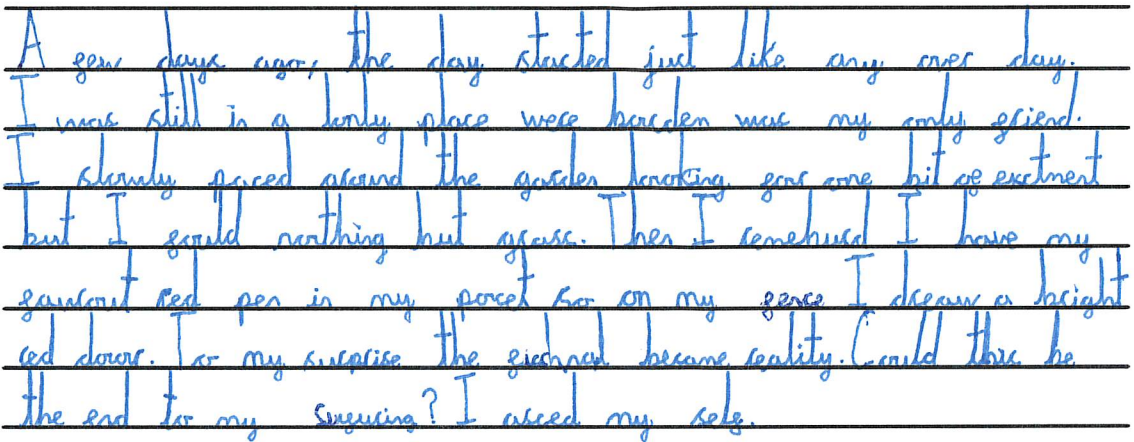 A few days ago, the day started just like any over day.
I was still in a lonly place were borden was my only friend.
I slowly paced around the garden looking for one bit of exctment
but I fould nothing but grass. Then I remeburd I have my
favrout red pen in my pocet so on my fence I dreaw a bright
red door. To my surprise the became reality. Could this be
the end to my sufucing? I asced my self.